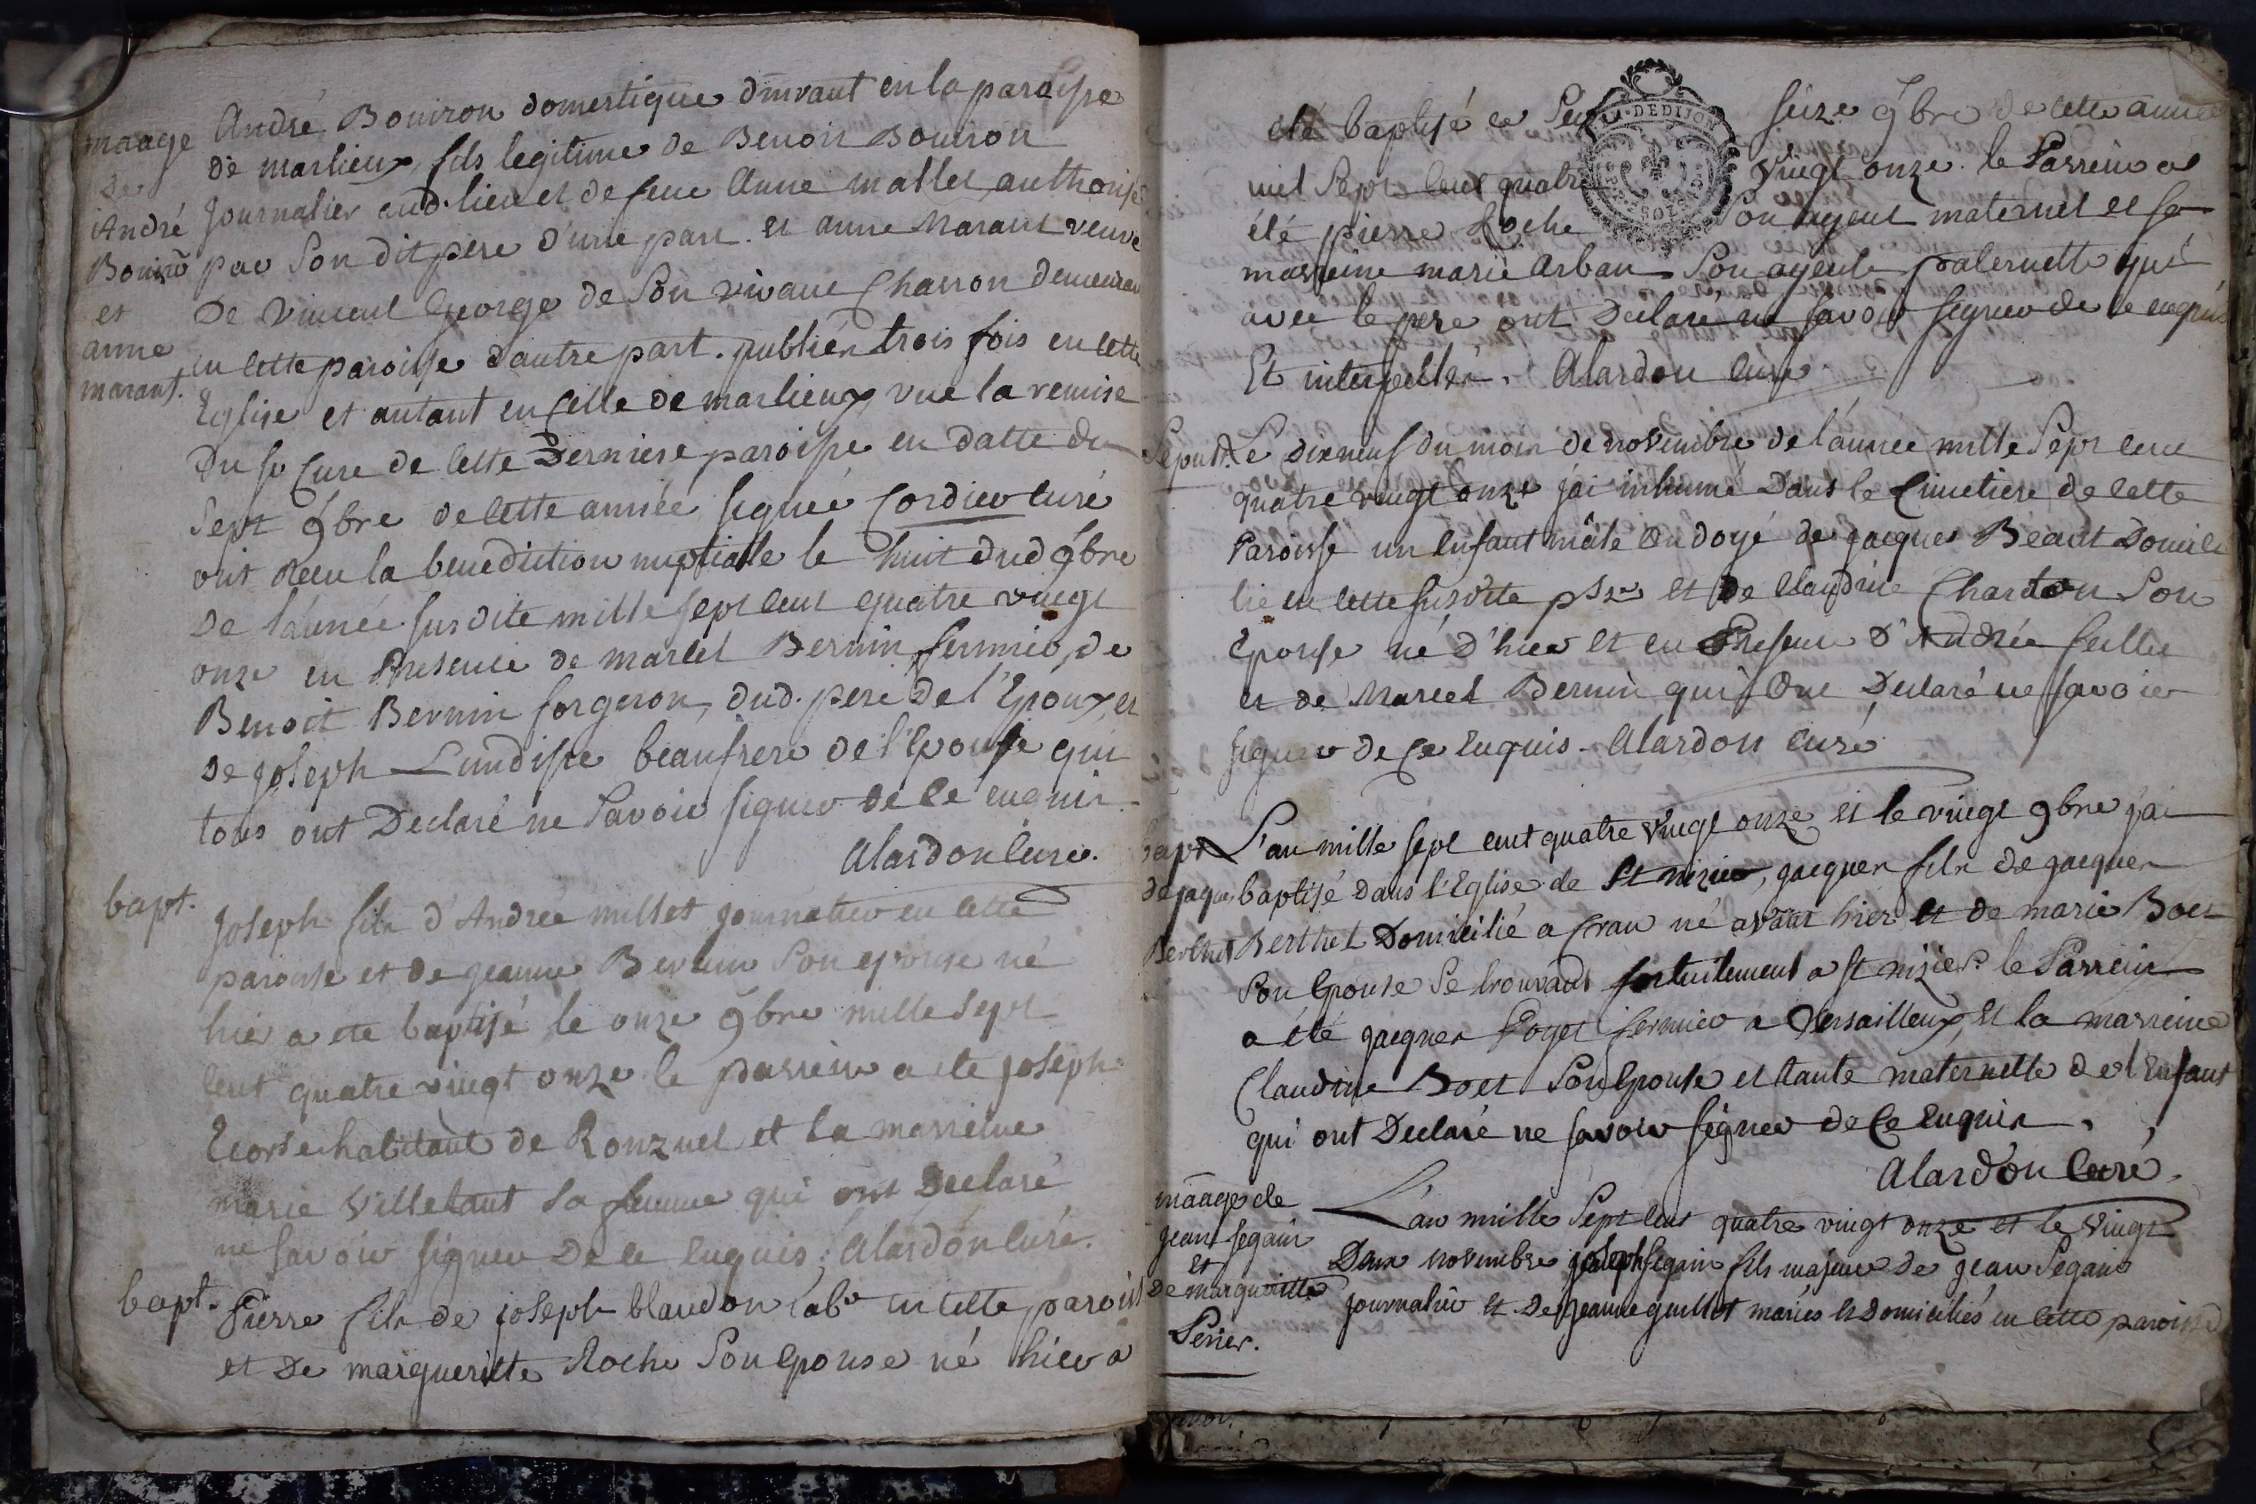 maage
de
André
Bouirō
et
anne
marant.
André Bouiron domestique dmrant en la paroisse
de marlieux fils legitime de Benoit Bouiron
journalier aud. lieu et de feue Anne mallet authorisé
par son dit pere d'une part. et anne Marant veuve
De vincent George de son vivant Charron demeurant
en cette paroisse d'autre part. publiés trois fois en cette
Eglise et autant en celle de marlieux vue la remise
Du sr Curé de cette Derniere paroisse en datte du
sept 9bre de cette année signée Cordier curé
ont Recu la benediction nuptiale le huit dud 9bre
de l'année susdite mille sept cent quatre vingt
onze en Presence de marcel Bernin fermier, de
Benoit Bernin forgeron, dud. pere de l'Epoux, et
de joseph Lundisse beaufrere de l'Epouse qui
tous ont Declaré ne savoir signer de ce enquis.
Alardon Curé.
bapt.
joseph fils d'Andrée millet journalier en cette
paroisse et de jeanne Bernin son epouse né
hier a ete baptisé le onze 9bre mille sept
cent quatre vingt onze le parrein a ete joseph
Ecorse habitant de Ronzuel et la marreine
marie Villetant sa femme qui ont Declaré
ne savoir signer De ce enquis. Alardon Curé.
bapt.
Pierre fils de joseph blandon labr en cette paroisse
et De margueritte Roche son Epouse né hier a
été baptisé ce seize 9bre de cette année
mil sept cent quatre vingt onze. le Parrein a
été pierre Roche son ayeul maternel et sa
marreine marie Arban son ayeule paternelle qui
avec le pere ont Declaré ne savoir signer de ce enquis
Et interpellés. Alardon Curé
LA. DEDIJON
Sepult.
Le dixneuf du mois de novembre de l'année mille sept cent
quatre vingt onze j'ai inhumé Dans le Cimetiere de cette
Paroisse un enfant mâle Ondoyé de jacques Beaut Domici
lié en cette susdite psse et de Claudine Chardon son
Epouse né d'hier et en Presence D'Andrée
et de Marcel Bernin qui ont Declaré ne savoir
signer de ce Enquis. Alardon curé
bapt
de jaques
Berthet
L'an mille sept cent quatre vingt onze et le vingt 9bre j'ai
baptisé dans l'Eglise de St nizier, jacques fils de jacques
Berthet Domicilié a Cran né avant hier et de marie Boet
son Epouse se trouvant fortuitement a st nizier. le Parrein
a été jacques Poget fermier a Versailleux, et la marreine
Claudine Boet son Epouse et tante maternelle de l'Enfant
qui ont Declaré ne savoir signer de ce enquis.
Alardon Curé.
māage de
jean segain
et
De margueritte
Perier.
L'an mille sept cent quatre vingt onze et le vingt
Deux novembre joseph segain fils majeur de jean segain
journalier et de jeanne guillot mariés et domiciliés en cette paroisse